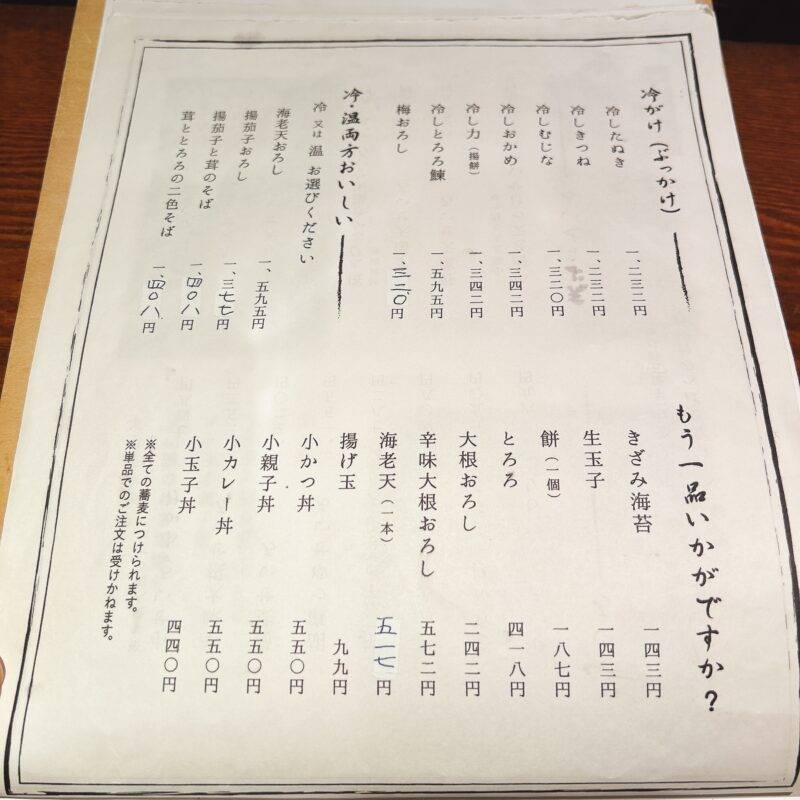 冷がけ(ぶっかけ)
冷したぬき 一、二三二円
冷しきつね 一、二三二円
冷しむじな 一、三二〇円
冷しおかめ 一、三四二円
冷し力(揚餅) 一、三四二円
冷しとろろ鰊 一、五九五円
梅おろし 一、三二〇円
冷・温両方おいしい
冷 又は 温 お選びください
海老天おろし 一、五九五円
揚茄子おろし 一、三七七円
揚茄子と茸のそば 一、四〇八円
茸ととろろの二色そば 一、四〇八円
もう一品いかがですか?
きざみ海苔 一四三円
生玉子 一四三円
餅(一個) 一八七円
とろろ 四一八円
大根おろし 二四二円
辛味大根おろし 五七二円
海老天(一本) 五一七円
揚げ玉 九九円
小かつ丼 五五〇円
小親子丼 五五〇円
小カレー丼 五五〇円
小玉子丼 四四〇円
※全ての蕎麦につけられます。
※単品でのご注文は受けかねます。